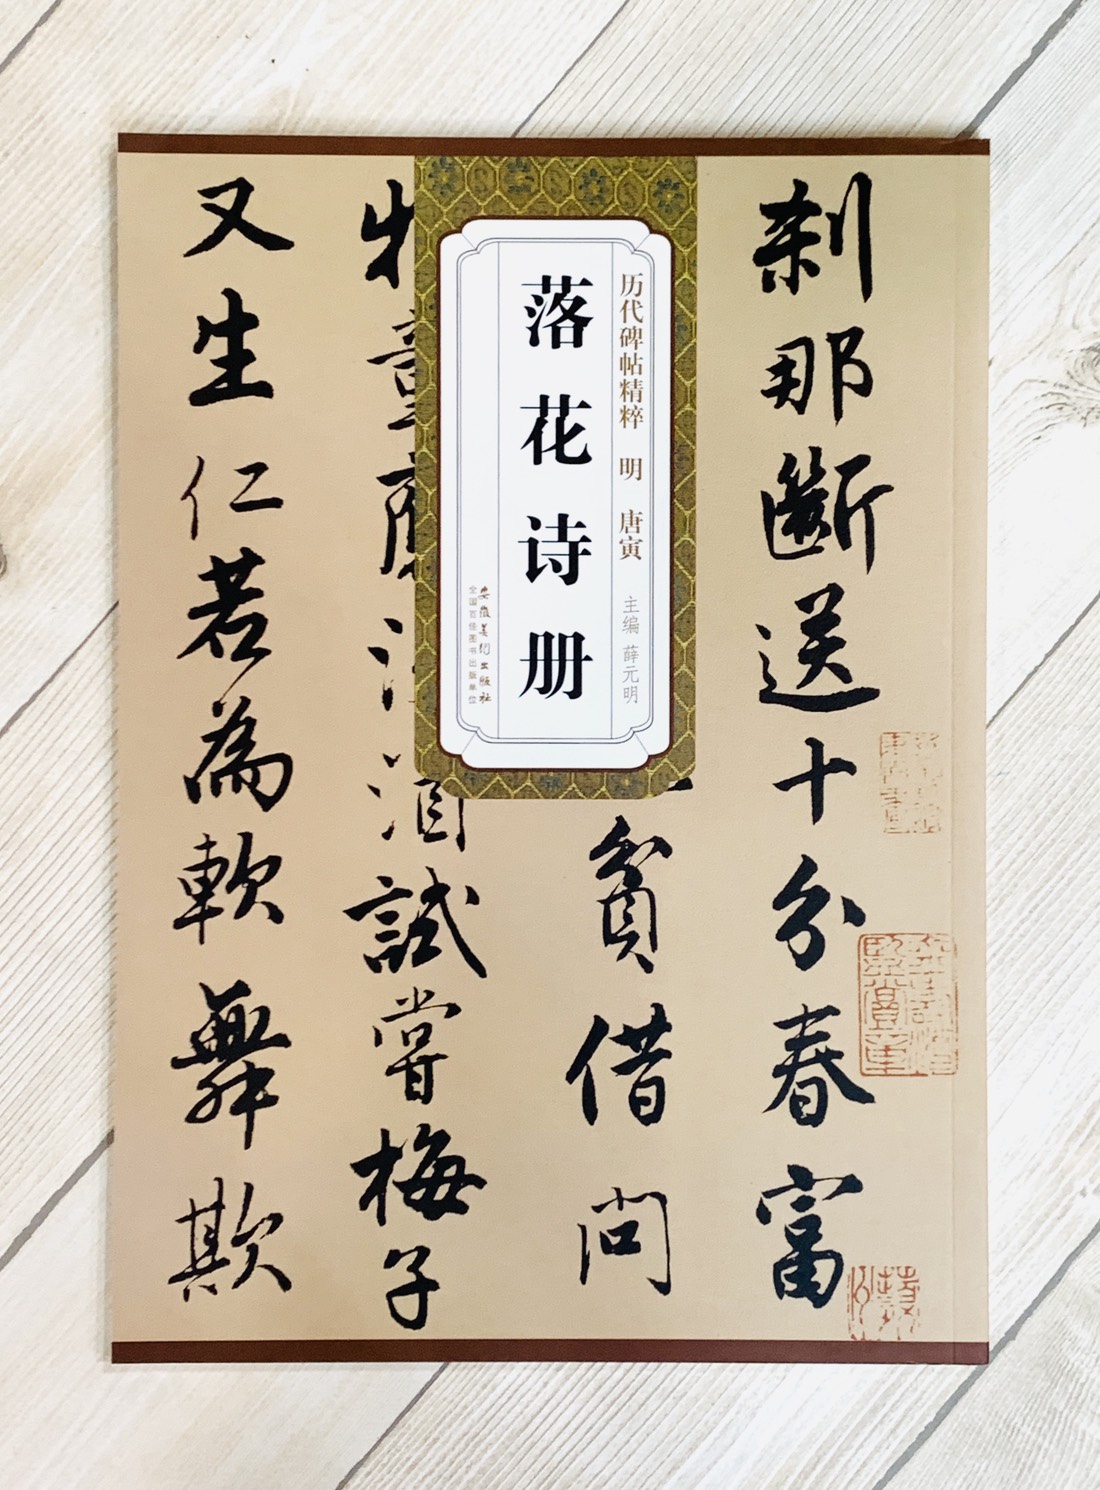 刹那断送十分春富
貧借问
童
酒試嘗梅子
又生仁若為軟舞欺
历代碑帖精粹 明 唐寅 主编 薛元明
落花诗册
安徽美术出版社
全国百佳图书出版单位